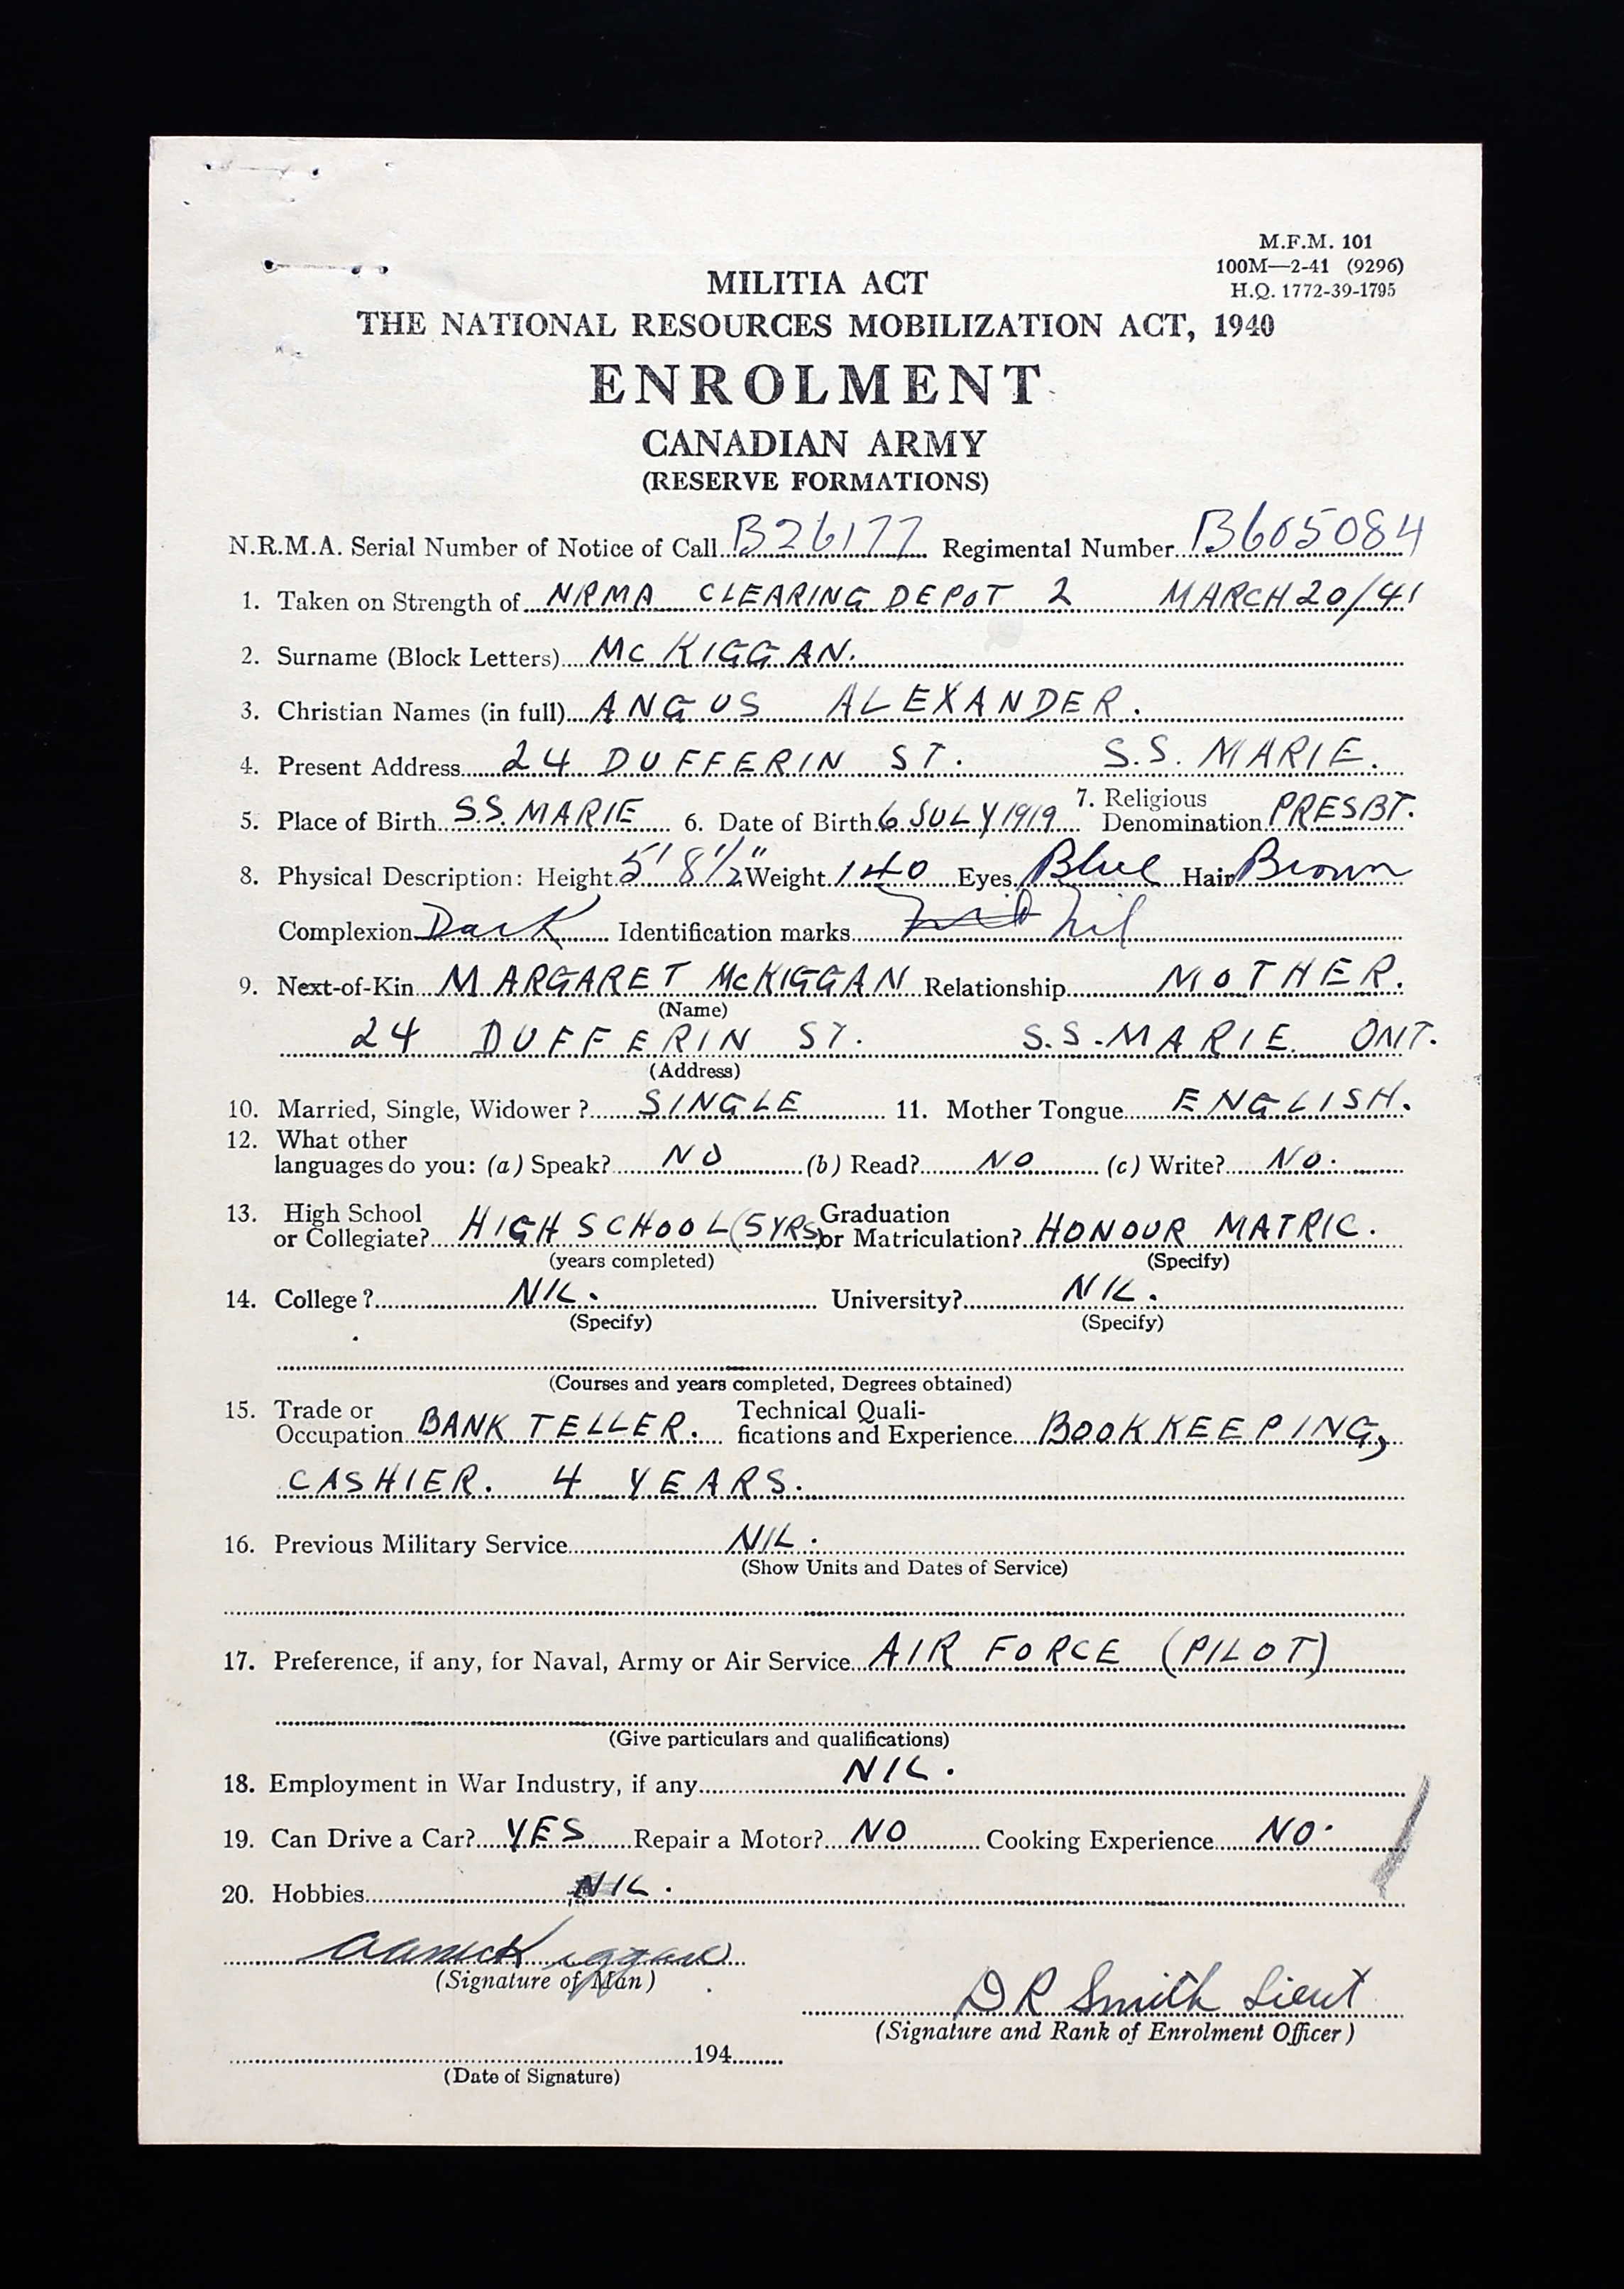 M.F.M. 101
100M—2-41 (9296)
H.Q. 1772-39-1795
MILITIA ACT
THE NATIONAL RESOURCES MOBILIZATION ACT, 1940
ENROLMENT
CANADIAN ARMY
(RESERVE FORMATIONS)
N.R.M.A. Serial Number of Notice of Call B26177 Regimental Number B605084
1. Taken on Strength of NRMA CLEARING DEPOT 2 MARCH 20/41
2. Surname (Block Letters) McKIGGAN.
3. Christian Names (in full) ANGUS ALEXANDER.
4. Present Address 24 DUFFERIN ST. S.S. MARIE.
5. Place of Birth S.S. MARIE 6. Date of Birth 6 JULY 1919 7. Religious Denomination PRESBT.
8. Physical Description: Height 5' 8 1/2" Weight 140 Eyes Blue Hair Brown
Complexion Dark Identification marks Nil
9. Next-of-Kin MARGARET McKIGGAN Relationship MOTHER.
(Name)
24 DUFFERIN ST. S.S. MARIE ONT.
(Address)
10. Married, Single, Widower? SINGLE 11. Mother Tongue ENGLISH.
12. What other
languages do you: (a) Speak? NO (b) Read? NO (c) Write? NO.
13. High School or Collegiate? HIGH SCHOOL (5 YRS) Graduation or Matriculation? HONOUR MATRIC.
(years completed) (Specify)
14. College? NIL. University? NIL.
(Specify) (Specify)
(Courses and years completed, Degrees obtained)
15. Trade or Occupation BANK TELLER. Technical Qualifications and Experience BOOKKEEPING,
CASHIER. 4 YEARS.
16. Previous Military Service NIL.
(Show Units and Dates of Service)
17. Preference, if any, for Naval, Army or Air Service AIR FORCE (PILOT)
(Give particulars and qualifications)
18. Employment in War Industry, if any NIL.
19. Can Drive a Car? YES Repair a Motor? NO Cooking Experience NO.
20. Hobbies NIL.
AAMcKiggan
(Signature of Man)
D R Smith Lieut
(Signature and Rank of Enrolment Officer)
194
(Date of Signature)